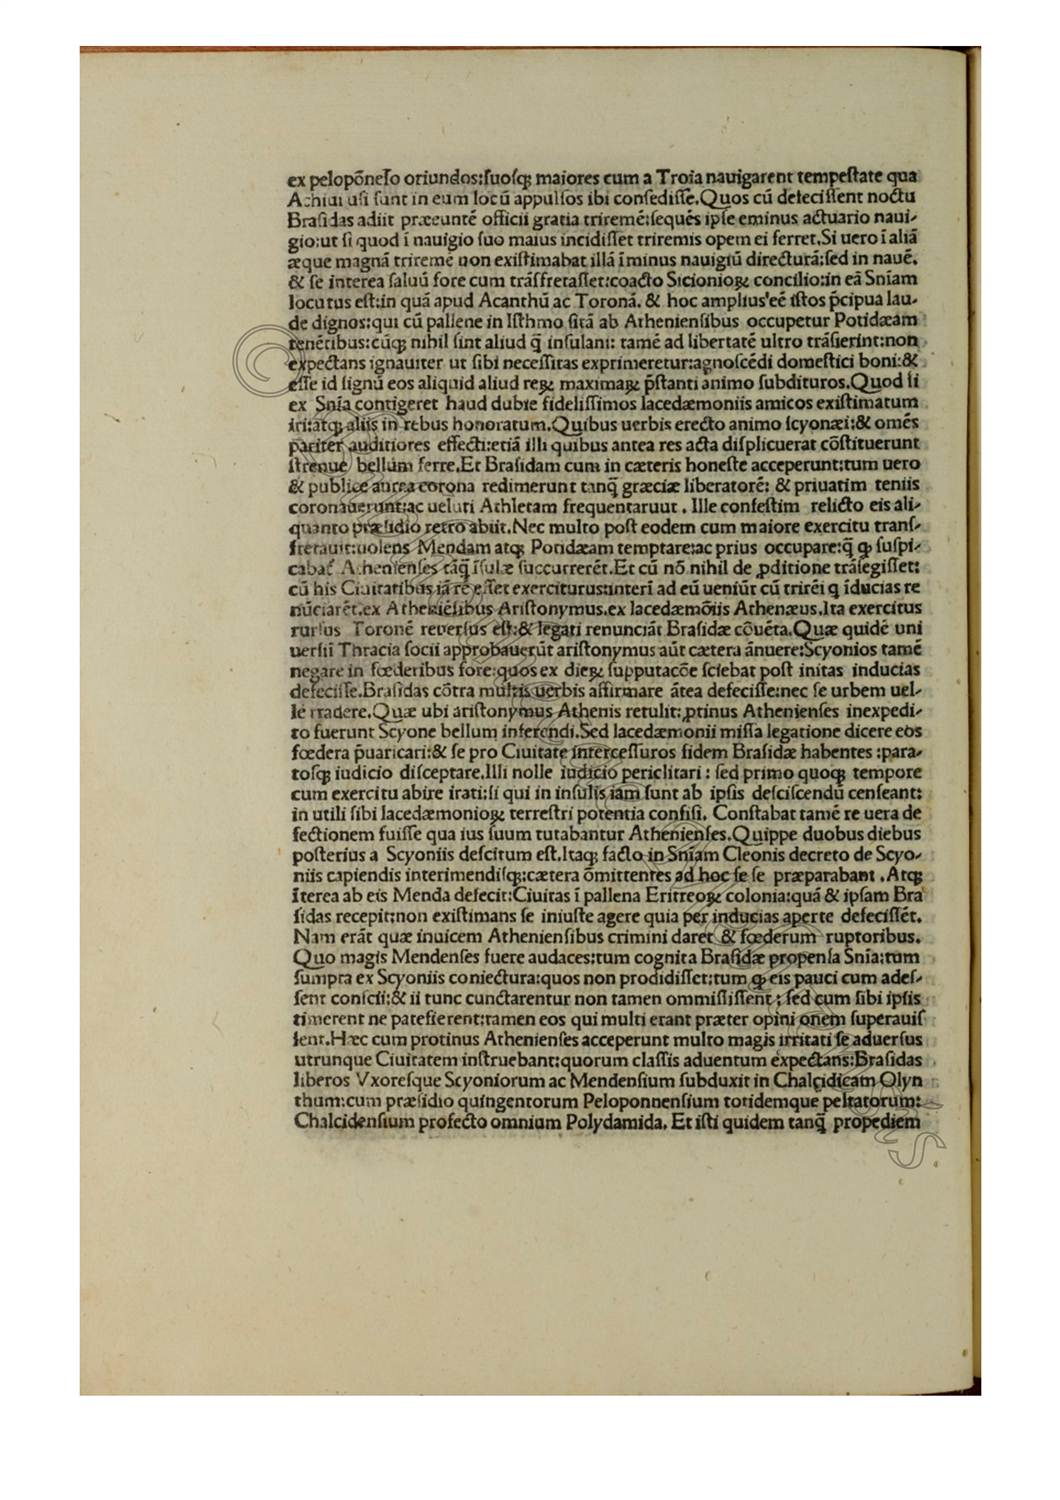 ex pelopōneſo oriundos:ſuoſq; maiores cum a Troia nauigarent tempeſtate qua
Achiui uſi ſunt in eum locū appulſos ibi conſediſſe.Quos cū defeciſſent noctu
Braſidas adiit præeuntē officii gratia triremē:ſequēs ipſe eminus actuario naui⸗
gio:ut ſi quod ī nauigio ſuo maius incidiſſet triremis opem ei ferret.Si uero ī aliā
æque magnā triremē non exiſtimabat illā īminus nauigiū directurā:ſed in nauē.
& ſe interea ſaluū fore cum trāſfretaſſet:coacto Sicionioꝝ concilio:in eā Snīam
locutus eſt:in quā apud Acanthū ac Toronā. & hoc amplius'eē iſtos p̄cipua lau⸗
de dignos:qui cū pallene in Iſthmo ſitā ab Athenienſibus occupetur Potidæam
tenētibus:cūq; nihil ſint aliud q̄ inſulani: tamē ad libertatē ultro trāſierint:non
expectans ignauiter ut ſibi neceſſitas exprimeretur:agnoſcēdi domeſtici boni:&
eſſe id ſignū eos aliquid aliud reꝝ maximaꝝ p̄ſtanti animo ſubdituros.Quod ſi
ex Snīa contigeret haud dubie fideliſſimos lacedæmoniis amicos exiſtimatum
iri:atq; aliis in rebus honoratum.Quibus uerbis erecto animo ſcyonæi:& omēs
pariter auditiores effecti:etiā illi quibus antea res acta diſplicuerat cōſtituerunt
ſtrenue bellum ferre.Et Braſidam cum in cæteris honeſte acceperunt:tum uero
& publice aurea corona redimerunt tanq̄ græciæ liberatorē: & priuatim teniis
coronauerunt:ac ueluti Athletam frequentaruut . Ille confeſtim relicto eis ali⸗
quanto præſidio retro abiit.Nec multo poſt eodem cum maiore exercitu tranſ⸗
fretauit:uolens Mendam atq; Potidæam temptare:ac prius occupare:q̄ ꝙ ſuſpi⸗
cabat᷑ Athenienſes tāq̄ īſulæ ſuccurrerēt.Et cū nō nihil de ꝓditione trāſegiſſet:
cū his Ciuitatibus iā re eſſet exerciturus:interī ad eū ueniūt cū trirēi q īducias re
nūciarēt.ex Atheniēſibus Ariſtonymus.ex lacedæmōiis Athenæus.Ita exercitus
rurſus Toronē reuerſus eſt:& legati renunciāt Braſidæ cōuēta.Quæ quidē uni
uerſii Thracia ſocii approbauerūt ariſtonymus aūt cætera ānuere:Scyonios tamē
negare in fœderibus fore:quos ex dieꝝ ſupputacōe ſciebat poſt initas inducias
defeciſſe.Braſidas cōtra multis uerbis affirmare ātea defeciſſe:nec ſe urbem uel⸗
le tradere.Quæ ubi ariſtonymus Athenis retulit:ꝓtinus Athenienſes inexpedi⸗
to fuerunt Scyone bellum inferendi.Sed lacedæmonii miſſa legatione dicere eos
fœdera p̄uaricari:& ſe pro Ciuitate interceſſuros fidem Braſidæ habentes :para⸗
toſq; iudicio diſceptare.Illi nolle iudicio periclitari : ſed primo quoq; tempore
cum exercitu abire irati:ſi qui in inſulis iam ſunt ab ipſis deſciſcendū cenſeant:
in utili ſibi lacedæmonioꝝ terreſtri potentia confiſi. Conſtabat tamē re uera de
fectionem fuiſſe qua ius ſuum tutabantur Athenienſes.Quippe duobus diebus
poſterius a Scyoniis deſcitum eſt.Itaq; facto in Snīam Cleonis decreto de Scyo⸗
niis capiendis interimendiſq;:cætera ōmittentes ad hoc ſe ſe præparabant .Atq;
īterea ab eis Menda defecit:Ciuitas ī pallena Eritreoꝝ colonia:quā & ipſam Bra
ſidas recepit:non exiſtimans ſe iniuſte agere quia per inducias aperte defeciſſēt.
Nam erāt quæ inuicem Athenienſibus crimini daret & fœderum ruptoribus.
Quo magis Mendenſes fuere audaces:tum cognita Braſidæ propenſa Snīa:tum
ſumpta ex Scyoniis coniectura:quos non prodidiſſet:tum ꝙ eis pauci cum adeſ⸗
ſent conſcii:& ii tunc cunctarentur non tamen ommiſiſſent : ſed cum ſibi ipſis
timerent ne patefierent:tamen eos qui multi erant præter opini onem ſuperauiſ
ſent.Hæc cum protinus Athenienſes acceperunt multo magis irritati ſe aduerſus
utrunque Ciuitatem inſtruebant:quorum claſſis aduentum expectans:Braſidas
liberos Vxoreſque Scyoniorum ac Mendenſium ſubduxit in Chalcidicam Olyn
thum:cum præſidio quingentorum Peloponnenſium totidemque peltatorum:
Chalcidenſium profecto omnium Polydamida. Et iſti quidem tanq̄ propediem